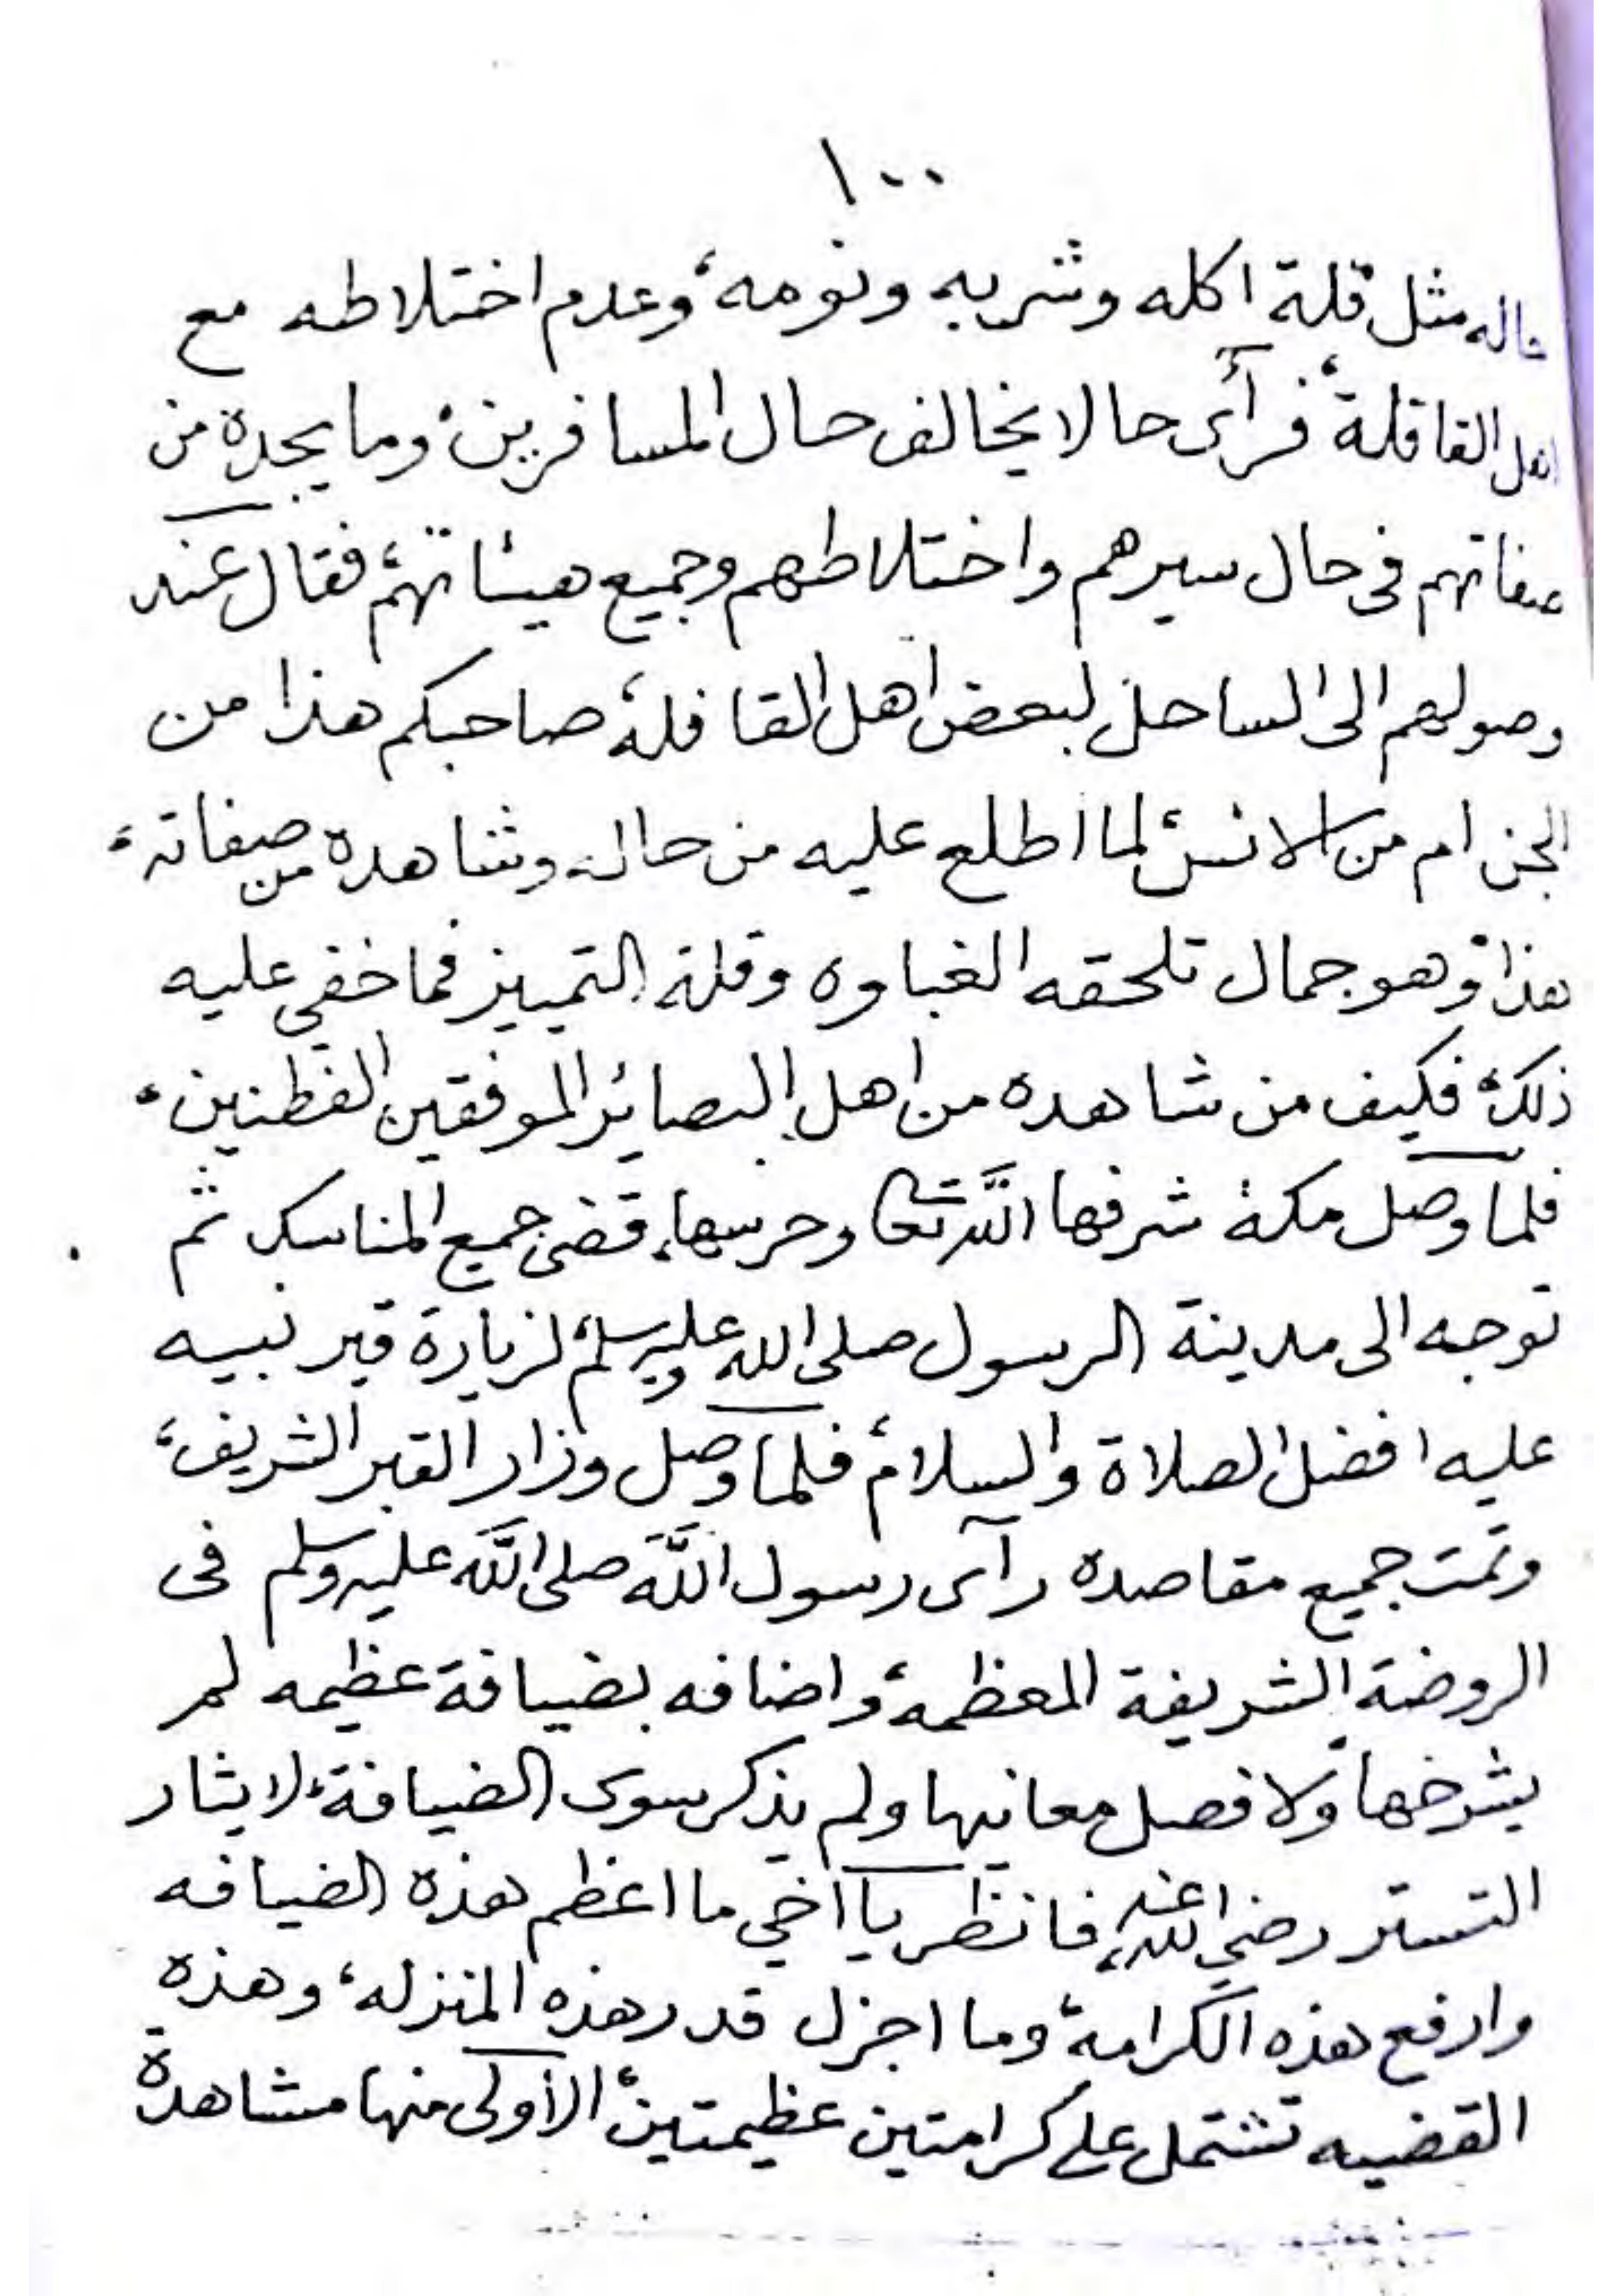 ١٠٠
حاله مثل قلة اكله وشربه ونومه، وعدم اختلاطه مع
اهل القافلة، فرأى حالا يخالف حال المسافرين، وما يجده من
صفاتهم في حال سيرهم واختلاطهم وجميع هيئاتهم، فقال عند
وصولهم الى الساحل لبعض اهل القافلة، صاحبكم هذا من
الجن ام من الانس، لما اطلع عليه من حاله وشاهده من صفاته،
هذا، وهو جمال تلحقه الغباوه وقلة التمييز فما خفي عليه
ذلك، فكيف من شاهده من اهل البصائر الموفقين الفطنين،
فلما وصل مكة شرفها الله تعالى وحرسها، قضى جميع المناسك ثم
توجه الى مدينة الرسول صلى الله عليه وسلم، لزيارة قبر نبيه
عليه افضل الصلاة والسلام، فلما وصل وزار القبر الشريف،
وتمت جميع مقاصده رآى رسول الله صلى الله عليه وسلم في
الروضة الشريفة المعظمة، واضافه بضيافة عظيمه لم
يشرحها ولا فصل معانيها ولم يذكر سوى الضيافة، لايثار
التستر رضي الله عنه، فانظر يا اخي ما اعظم هذه الضيافه
وارفع هذه الكرامة، وما اجزل قدر هذه المنزله، وهذه
القضيه تشتمل على كرامتين عظيمتين، الأولى منها مشاهدة